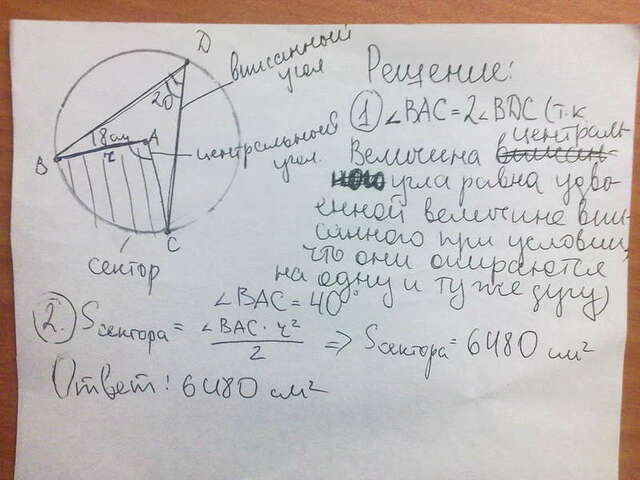 D
вписанный
угол
20
18 см
B
r
A
центральный
угол.
C
сектор
Рещение:
1 ∠BAC = 2∠BDC (т.к
централь
Величина вписан-
ного угла равна удво-
енной величине впи-
санного при условии,
что они опираются
на одну и ту же дугу)
∠BAC = 40°
2. Sсектора = ∠BAC · r² / 2 => Sсектора = 6480 см²
Ответ: 6480 см²